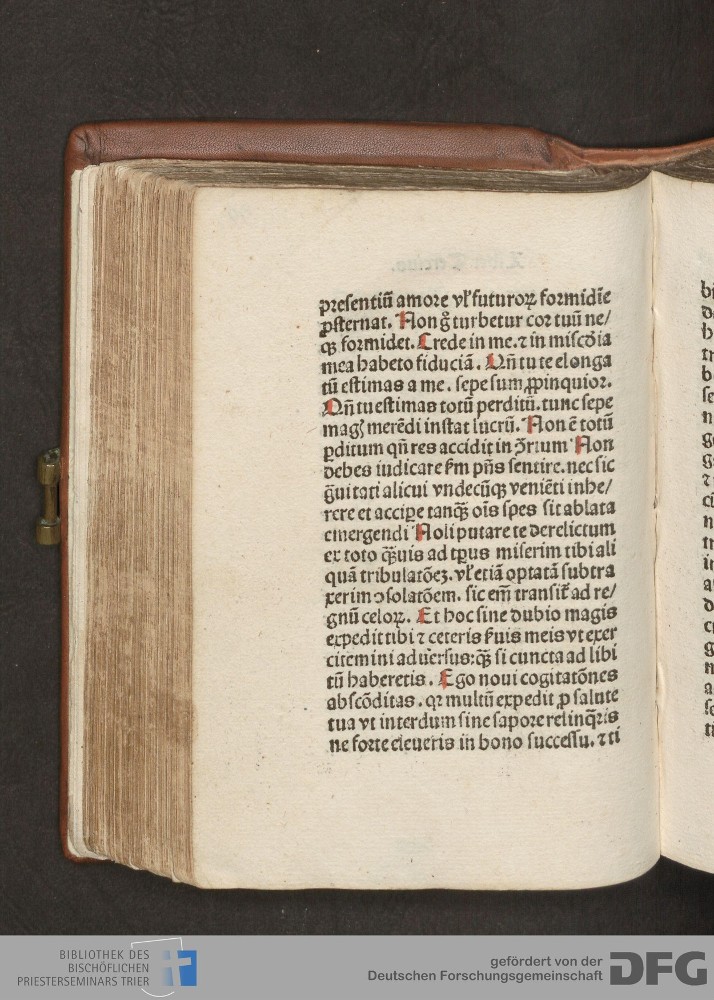 presentiū amore vl' futuroꝝ formidīe
ꝓsternat. Non g̊ turbetur cor tuū ne/
qꝫ formidet. Crede in me. ⁊ in misc̄dia
mea habeto fiduciā. Qn̄ tu te elonga
tū estimas a me. sepe sum ꝓpinquior.
Qn̄ tu estimas totū perditū. tunc sepe
magꝭ merēdi instat lucrū. Non ē totū
ꝑditum qn̄ res accidit in ꝯ̄rium Non
debes iudicare ẜm pn̄s sentire. nec sic
ḡuitati alicui vndecūqꝫ veniēti inhe/
rere et accipe tanqꝫ̄ oīs spes sit ablata
emergendi Noli putare te derelictum
ex toto qꝫ̄uis ad tp̄us miserim tibi ali
quā tribulatōeꝫ. vl' etiā optatā subtra
xerim ꝯsolatōem. sic em̄ transit̄ ad re/
gnū celoꝝ. Et hoc sine dubio magis
expedit tibi ⁊ ceteris ẜuis meis vt exer
citemini aduersus: qꝫ̄ si cuncta ad libi
tū haberetis. Ego noui cogitatōnes
abscōditas. qꝛ multū expedit ꝓ salute
tua vt interdum sine sapore relinq̄ris
ne forte eleueris in bono successu. ⁊ ti
BIBLIOTHEK DES
BISCHÖFLICHEN
PRIESTERSEMINARS TRIER
gefördert von der
Deutschen Forschungsgemeinschaft
DFG